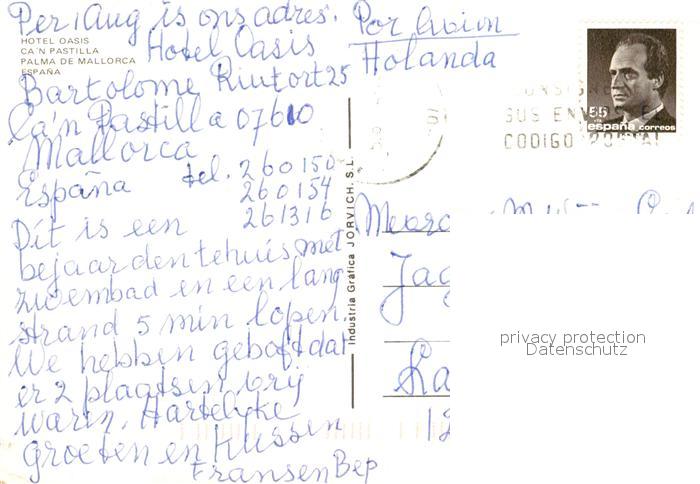 Per 1 Aug is ons adres.
HOTEL OASIS
CA'N PASTILLA
PALMA DE MALLORCA
ESPAÑA
Hotel Oasis
Bartolome Riutort 25
Ca'n Pastilla 07610
Mallorca
España tel. 260150
260154
261316
Dit is een
bejaardentehuis met
zwembad en een lang
strand 5 min lopen.
We hebben geboft dat
er 2 plaatsen vrij
waren. Hartelijke
groeten en kussen
Frans en Bep
Industria Gráfica JORVICH, S.L.
Por avion
Holanda
55
españa correos
CONSIGNE
SUS ENV
CODIGO POSTAL
Jag
La
privacy protection
Datenschutz